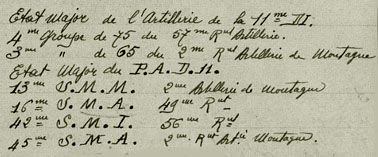 Etat Major de l'Artillerie de la 11me DI.
4me Groupe de 75 du 57me Rnt Artillerie.
3me " de 65 du 2me Rnt Artillerie de Montagne
Etat Major du P.A.D. 11.
13me S.M.M. 2me Artillerie de Montagne
16me S.M.A. 49me Rnt
42me S.M.I. 56me Rnt
45me S.M.A. 2me Rnt Artie Montagne.